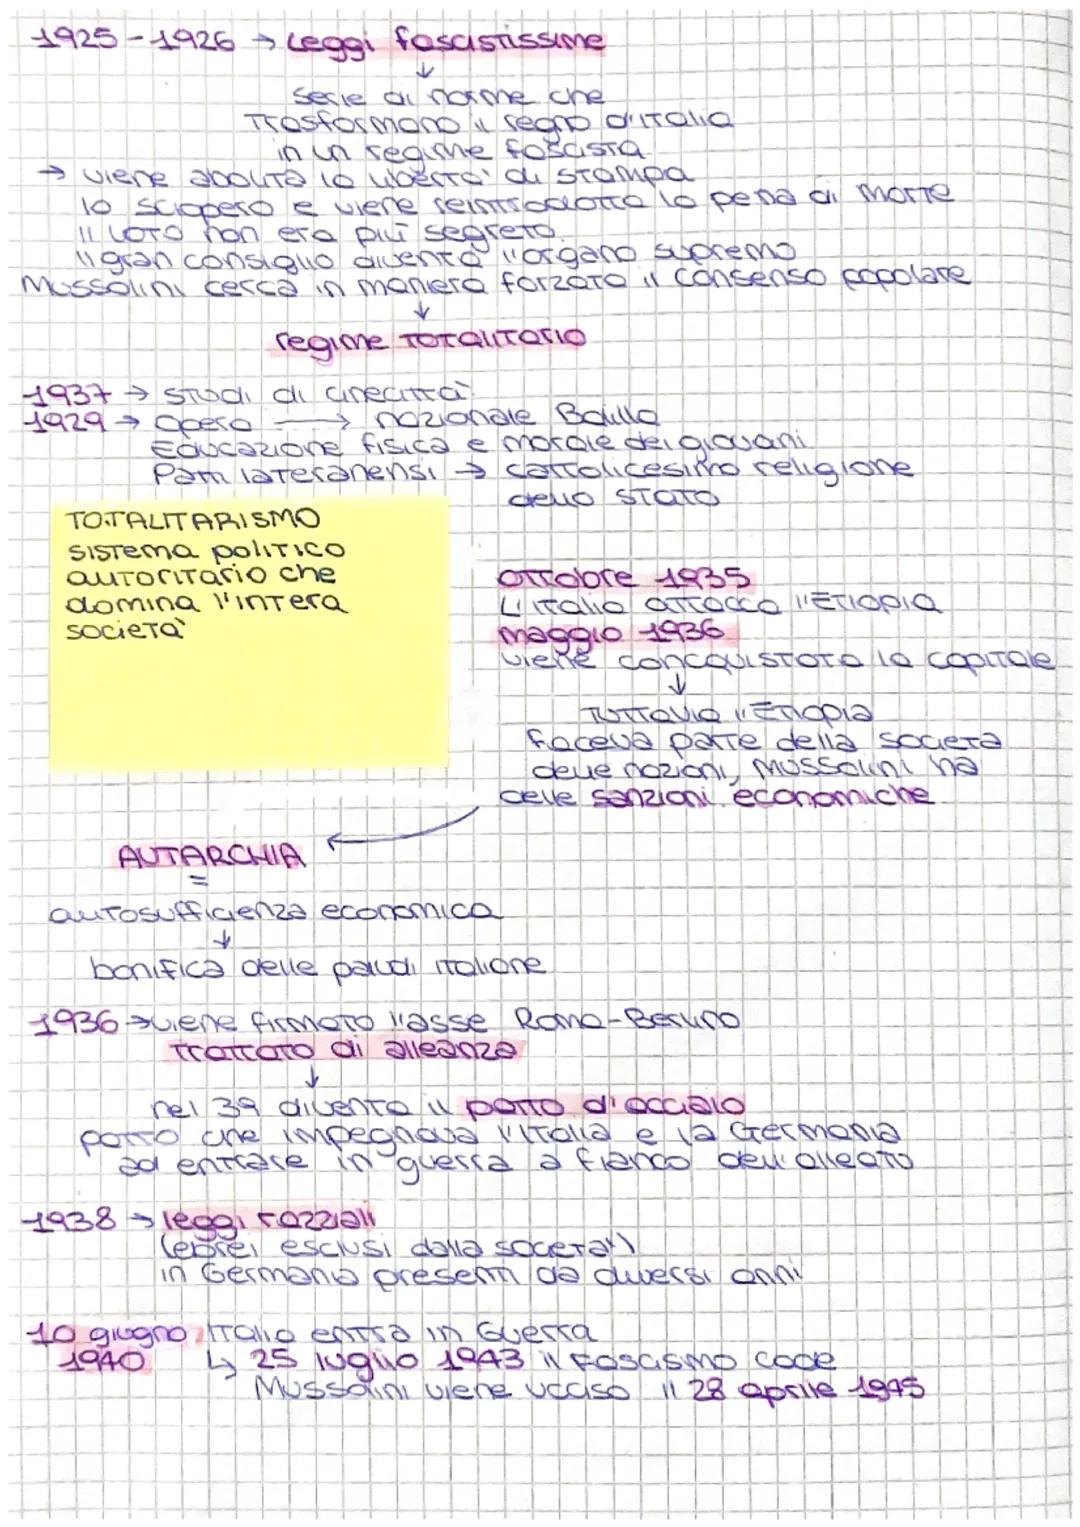 1925-1926 → Leggi fascistissime
↓
Serie di norme che
Trasformano il regno d'ITalia
in un regime fascista
→ viene abolita la libertà di stampa
lo sciopero e viene reintrodotta la pena di morte
il voto non era più segreto.
il gran consiglio diventa l'organo supremo
Mussolini cerca in maniera forzata il consenso popolare
↓
regime totalitario
1937 → studi di cinecittà
1929 → Opera → nazionale Balilla
Educazione fisica e morale dei giovani
Patti lateranensi → cattolicesimo religione
dello stato
TOTALITARISMO
sistema politico
autoritario che
domina l'intera
società
ottobre 1935
L'italia attacca l'Etiopia
maggio 1936
viene concquistata la capitale
↓
Tuttavia l'Etiopia
faceva parte della società
delle nazioni, Mussolini ha
delle sanzioni economiche
AUTARCHIA
=
autosufficienza economica
↓
bonifica delle paludi italiane
1936 → viene firmato l'asse Roma-Berlino
trattato di alleanza
↓
nel 39 diventa il patto d'acciaio
patto che impegnava l'Italia e la Germania
ad entrare in guerra a fianco dell'alleato
1938 → leggi razziali
(ebrei esclusi dalla società)
in Germania presenti da diversi anni
10 giugno Italia entra in Guerra
1940 ↳ 25 luglio 1943 il Fascismo cade
Mussolini viene ucciso il 28 aprile 1945